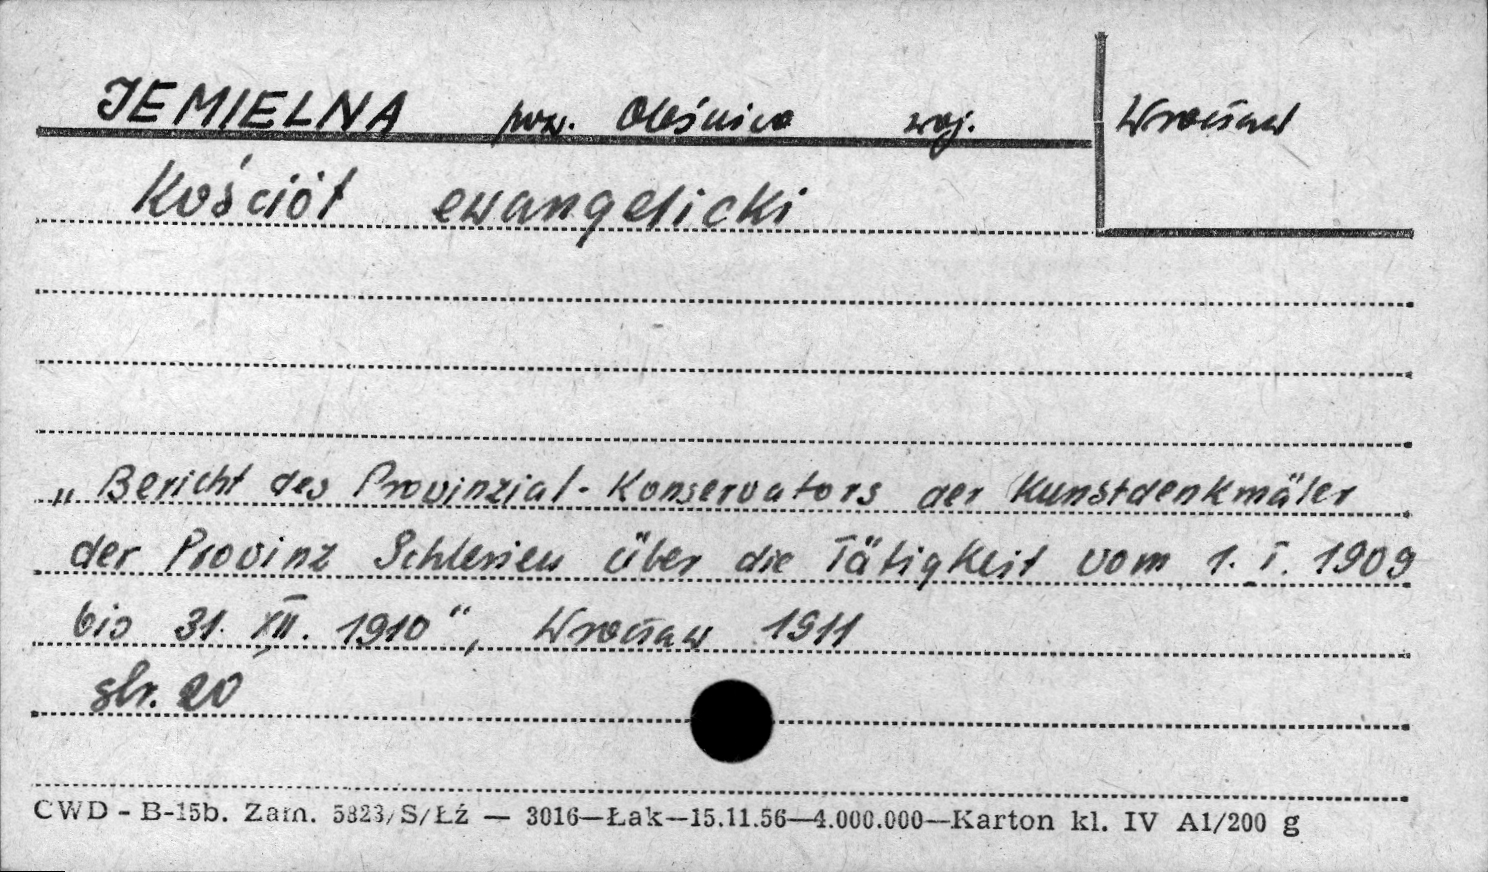 JEMIELNA pow. Oleśnica woj. Wrocław
Kościół ewangelicki
„Bericht des Provinzial-Konservators der Kunstdenkmäler
der Provinz Schlesien über die Tätigkeit vom 1. I. 1909
bis 31. XII. 1910“, Wrocław 1911
str. 20
CWD - B-15b. Zam. 5823/S/Łź — 3016—Łak—15.11.56—4.000.000—Karton kl. IV A1/200 g